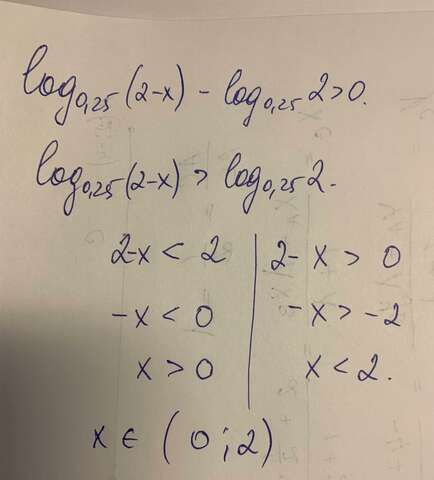 log₀,₂₅(2-x) - log₀,₂₅ 2 > 0.
log₀,₂₅(2-x) > log₀,₂₅ 2.
2-x < 2 | 2- x > 0
-x < 0 | -x > -2
x > 0 | x < 2.
x ∈ (0 ; 2)